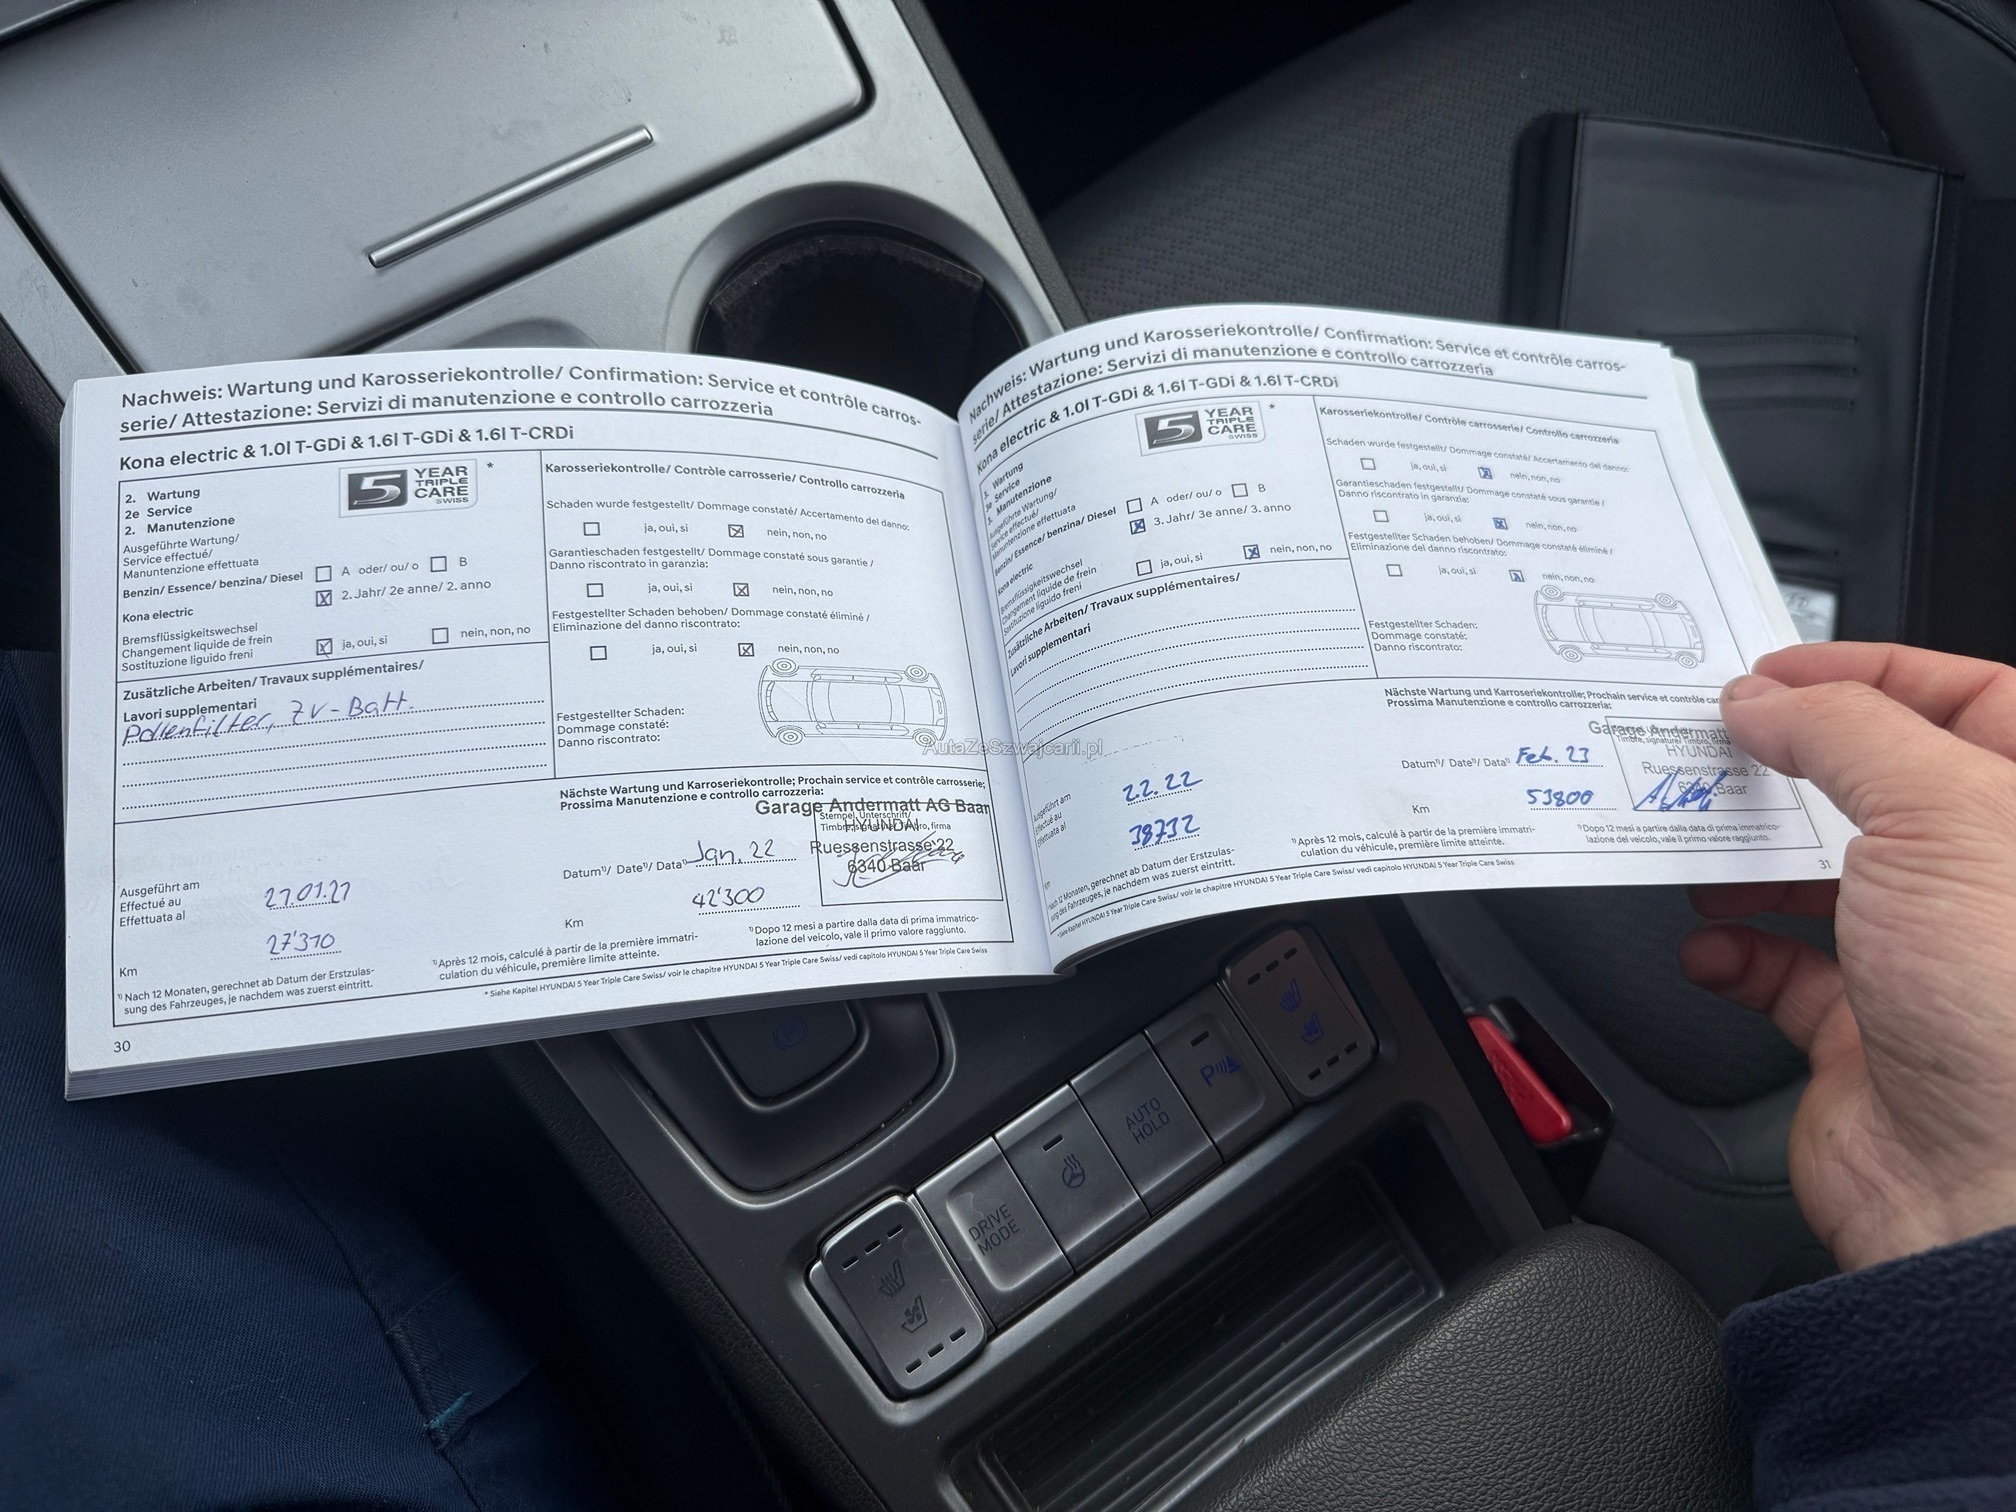 Nachweis: Wartung und Karosseriekontrolle/ Confirmation: Service et contrôle carros-
serie/ Attestazione: Servizi di manutenzione e controllo carrozzeria
Kona electric & 1.0l T-GDi & 1.6l T-GDi & 1.6l T-CRDi
2. Wartung
2e Service
2. Manutenzione
5 YEAR
TRIPLE
CARE
SWISS
*
Ausgeführte Wartung/
Service effectué/
Manutenzione effettuata
Benzin/ Essence/ benzina/ Diesel
A oder/ ou/ o B
Kona electric
2. Jahr/ 2e anne/ 2. anno
Bremsflüssigkeitswechsel
Changement liquide de frein
Sostituzione liguido freni
ja, oui, si
nein, non, no
Zusätzliche Arbeiten/ Travaux supplémentaires/
Lavori supplementari
Pollenfilter, ZV-Batt.
Karosseriekontrolle/ Contrôle carrosserie/ Controllo carrozzeria
Schaden wurde festgestellt/ Dommage constaté/ Accertamento del danno:
ja, oui, si nein, non, no
Garantieschaden festgestellt/ Dommage constaté sous garantie /
Danno riscontrato in garanzia:
ja, oui, si nein, non, no
Festgestellter Schaden behoben/ Dommage constaté éliminé /
Eliminazione del danno riscontrato:
ja, oui, si nein, non, no
Festgestellter Schaden:
Dommage constaté:
Danno riscontrato:
Ausgeführt am
Effectué au
Effettuata al
27.01.21
Km
27'310
Nächste Wartung und Karroseriekontrolle; Prochain service et contrôle carrosserie;
Prossima Manutenzione e controllo carrozzeria:
Garage Andermatt AG Baar
Stempel, Unterschrift/
HYUNDAI
Ruessenstrasse 22
6340 Baar
Datum¹⁾/ Date¹⁾/ Data¹⁾ Jan. 22
Km 42'300
¹⁾ Nach 12 Monaten, gerechnet ab Datum der Erstzulas-
sung des Fahrzeuges, je nachdem was zuerst eintritt.
¹⁾ Après 12 mois, calculé à partir de la première immatri-
culation du véhicule, première limite atteinte.
¹⁾ Dopo 12 mesi a partire dalla data di prima immatrico-
lazione del veicolo, vale il primo valore raggiunto.
* Siehe Kapitel HYUNDAI 5 Year Triple Care Swiss/ voir le chapitre HYUNDAI 5 Year Triple Care Swiss/ vedi capitolo HYUNDAI 5 Year Triple Care Swiss
30
Nachweis: Wartung und Karosseriekontrolle/ Confirmation: Service et contrôle carros-
serie/ Attestazione: Servizi di manutenzione e controllo carrozzeria
Kona electric & 1.0l T-GDi & 1.6l T-GDi & 1.6l T-CRDi
3. Wartung
3e Service
3. Manutenzione
5 YEAR
TRIPLE
CARE
SWISS
*
Ausgeführte Wartung/
Service effectué/
Manutenzione effettuata
Benzin/ Essence/ benzina/ Diesel
A oder/ ou/ o B
Kona electric
3. Jahr/ 3e anne/ 3. anno
Bremsflüssigkeitswechsel
Changement liquide de frein
Sostituzione liguido freni
ja, oui, si
nein, non, no
Zusätzliche Arbeiten/ Travaux supplémentaires/
Lavori supplementari
Karosseriekontrolle/ Contrôle carrosserie/ Controllo carrozzeria
Schaden wurde festgestellt/ Dommage constaté/ Accertamento del danno:
ja, oui, si nein, non, no
Garantieschaden festgestellt/ Dommage constaté sous garantie /
Danno riscontrato in garanzia:
ja, oui, si nein, non, no
Festgestellter Schaden behoben/ Dommage constaté éliminé /
Eliminazione del danno riscontrato:
ja, oui, si nein, non, no
Festgestellter Schaden:
Dommage constaté:
Danno riscontrato:
Ausgeführt am
Effectué au
Effettuata al
2.2.22
Km
38732
Nächste Wartung und Karroseriekontrolle; Prochain service et contrôle
Prossima Manutenzione e controllo carrozzeria:
Garage Andermatt
HYUNDAI
Ruessenstrasse 22
6340 Baar
Datum¹⁾/ Date¹⁾/ Data¹⁾ Feb. 23
Km 53800
¹⁾ Nach 12 Monaten, gerechnet ab Datum der Erstzulas-
sung des Fahrzeuges, je nachdem was zuerst eintritt.
¹⁾ Après 12 mois, calculé à partir de la première immatri-
culation du véhicule, première limite atteinte.
¹⁾ Dopo 12 mesi a partire dalla data di prima immatrico-
lazione del veicolo, vale il primo valore raggiunto.
* Siehe Kapitel HYUNDAI 5 Year Triple Care Swiss/ voir le chapitre HYUNDAI 5 Year Triple Care Swiss/ vedi capitolo HYUNDAI 5 Year Triple Care Swiss
31
AutaZeSzwajcarii.pl
DRIVE
MODE
AUTO
HOLD
P